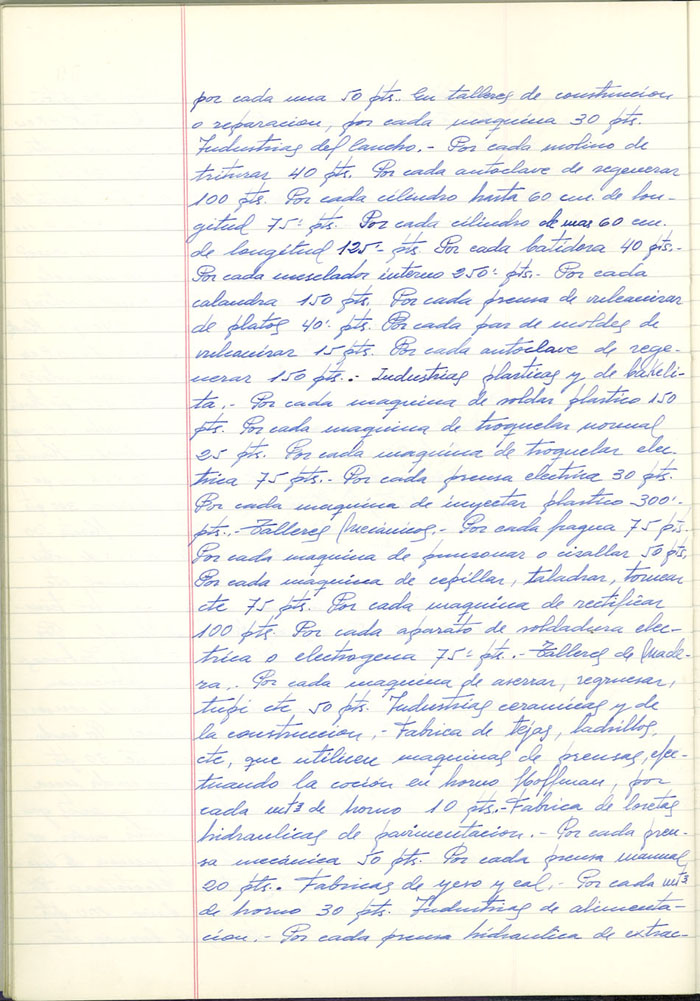 por cada una 50 pts. En talleres de construccion
o reparacion, por cada maquina 30 pts.
Industrias del caucho.- Por cada molino de
triturar 40 pts. Por cada autoclave de regenerar
100 pts. Por cada cilindro hasta 60 cm. de lon-
gitud 75'- pts. Por cada cilindro de mas 60 cm.
de longitud 125'- pts. Por cada batidora 40 pts.-
Por cada mesclador interno 250'- pts.- Por cada
calandra 150 pts. Por cada prensa de vulcanizar
de platos 40'- pts. Por cada par de moldes de
vulcanizar 15 pts. Por cada autoclave de rege-
nerar 150 pts.- Industrias plasticas y de bakeli-
ta.- Por cada maquina de soldar plastico 150
pts. Por cada maquina de troquelar normal
25 pts. Por cada maquina de troquelar elec-
trica 75 pts.- Por cada prensa electrica 30 pts.
Por cada maquina de inyectar plastico 300'-
pts.- Talleres Mecánicos.- Por cada fragua 75 pts.
Por cada maquina de punzonar o cisallar 50 pts.
Por cada maquina de cepillar, taladrar, tornear
etc 75 pts. Por cada maquina de rectificar
100 pts. Por cada aparato de soldadura elec-
trica o electrogena 75'- pts.- Talleres de Made-
ra.- Por cada maquina de aserrar, regruesar,
tupi etc 50 pts. Industrias ceramicas y de
la construccion.- Fabrica de tejas, ladrillos,
etc, que utilicen maquinas de prensas, efec-
tuando la coción en horno Hoffman, por
cada mt3 de horno 10 pts.- Fabrica de losetas
hidraulicas de pavimentacion.- Por cada pren-
sa mecánica 50 pts. Por cada prensa manual
20 pts. Fabricas de yeso y cal.- Por cada mt3
de horno 30 pts. Industrias de alimenta-
cion.- Por cada prensa hidraulica de extrac-